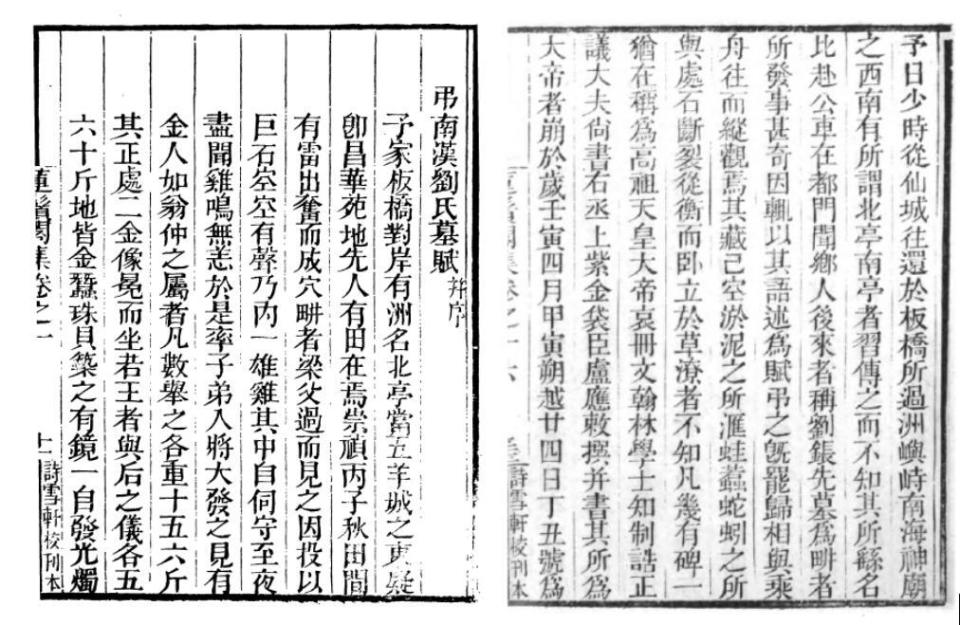 弔南漢劉氏墓賦 并序
予家板橋對岸有洲名北亭當五羊城之東疑
卽昌華苑地先人有田在焉崇禎丙子秋田間
有雷出奮而成穴畊者梁父過而見之因投以
巨石空空有聲乃內一雄雞其中自伺守至夜
盡聞雞鳴無恙於是率子弟入將大發之見有
金人如翁仲之屬者凡數舉之各重十五六斤
其正處二金像冕而坐若王者與后之儀各五
六十斤地皆金蠶珠貝築之有鏡一自發光燭
蓮鬚閣集卷之一 十一 詩雪軒校刊本
予日少時從仙城往還於板橋所過洲嶼峙南海神廟
之西南有所謂北亭南亭者習傳之而不知其所繇名
比赴公車在都門聞鄉人後來者稱劉鋹先墓為畊者
所發事甚奇因輒以其語述為賦弔之旣罷歸相與乘
舟往而縱觀焉其藏已空淤泥之所滙蛙蠚蛇蚓之所
與處石斷裂從衡而臥立於草潦者不知凡幾有碑一
猶在稱為高祖天皇大帝哀冊文翰林學士知制誥正
議大夫尚書右丞上紫金袋臣盧應敕撰并書其所為
大帝者崩於歲壬寅四月甲寅朔越廿四日丁丑號為
集卷之十六 詩雪軒校刊本